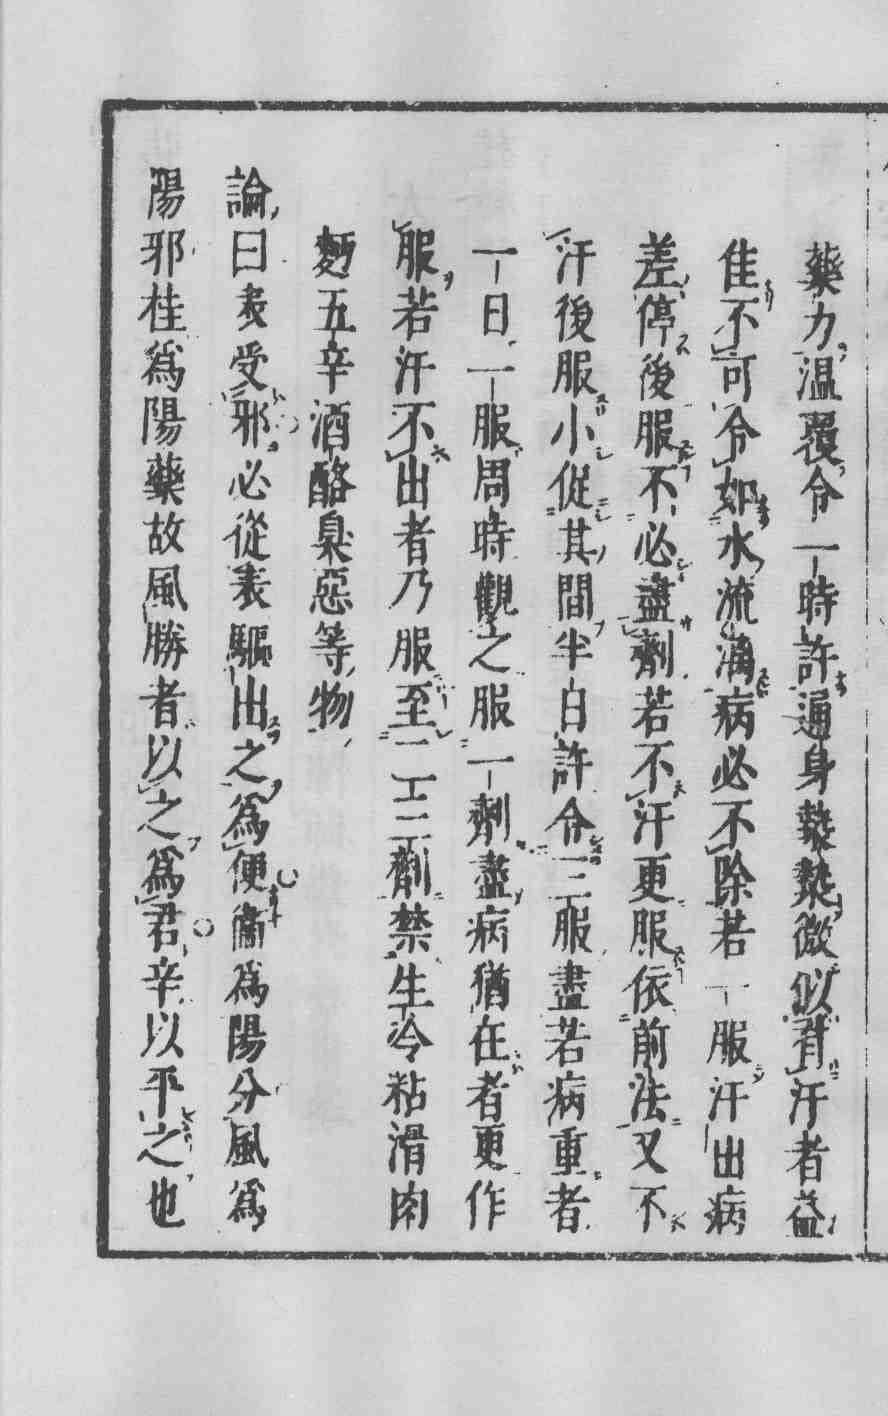 藥力温覆令一時許遍身漐漐微似有汗者益
佳不可令如水流漓病必不除若一服汗出病
差停後服不必盡劑若不汗更服依前法又不
汗後服小從其間半日許令三服盡若病重者
一日一服周時觀之服一劑盡病猶在者更作
服若汗不出者乃服至二三劑禁生冷粘滑肉
麪五辛酒酪臭惡等物
論曰表受邪必從表驅出之爲便衞爲陽分風爲
陽邪桂爲陽藥故風勝者以之爲君辛以平之也